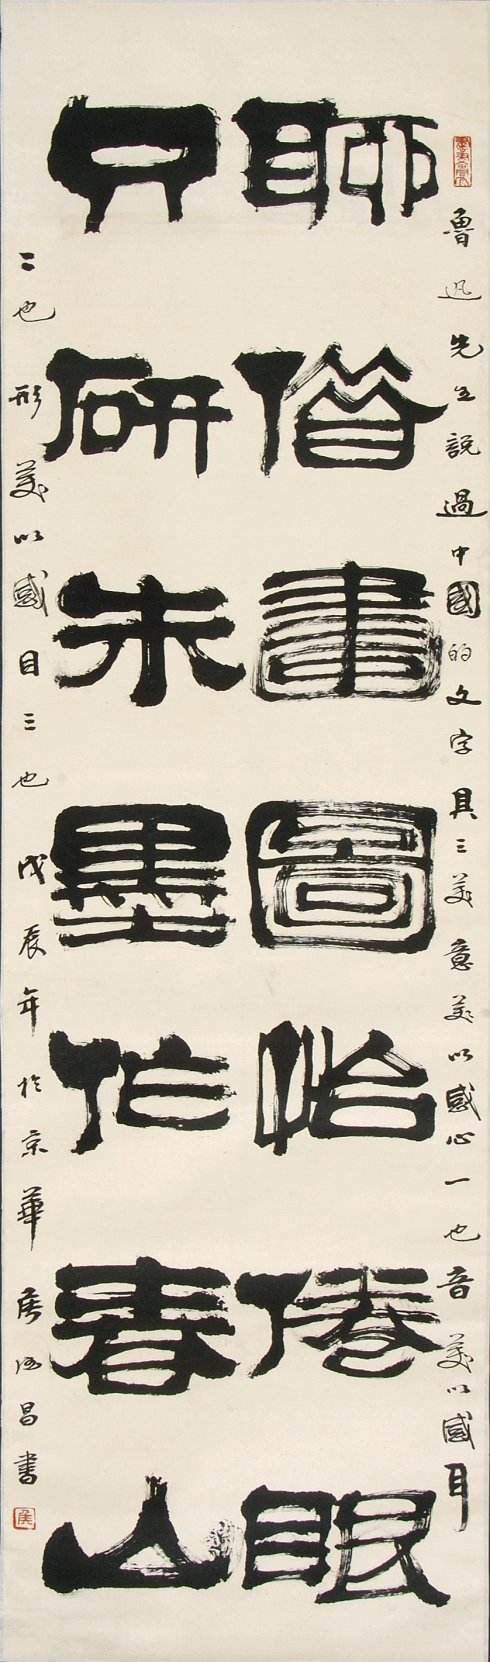 魯迅先生說過中國的文字具三美意美以感心一也音美以感耳
聊借畫圖怡倦眼
只研朱墨作春山
二也形美以感目三也 戊辰年於京華 侯德昌書
侯